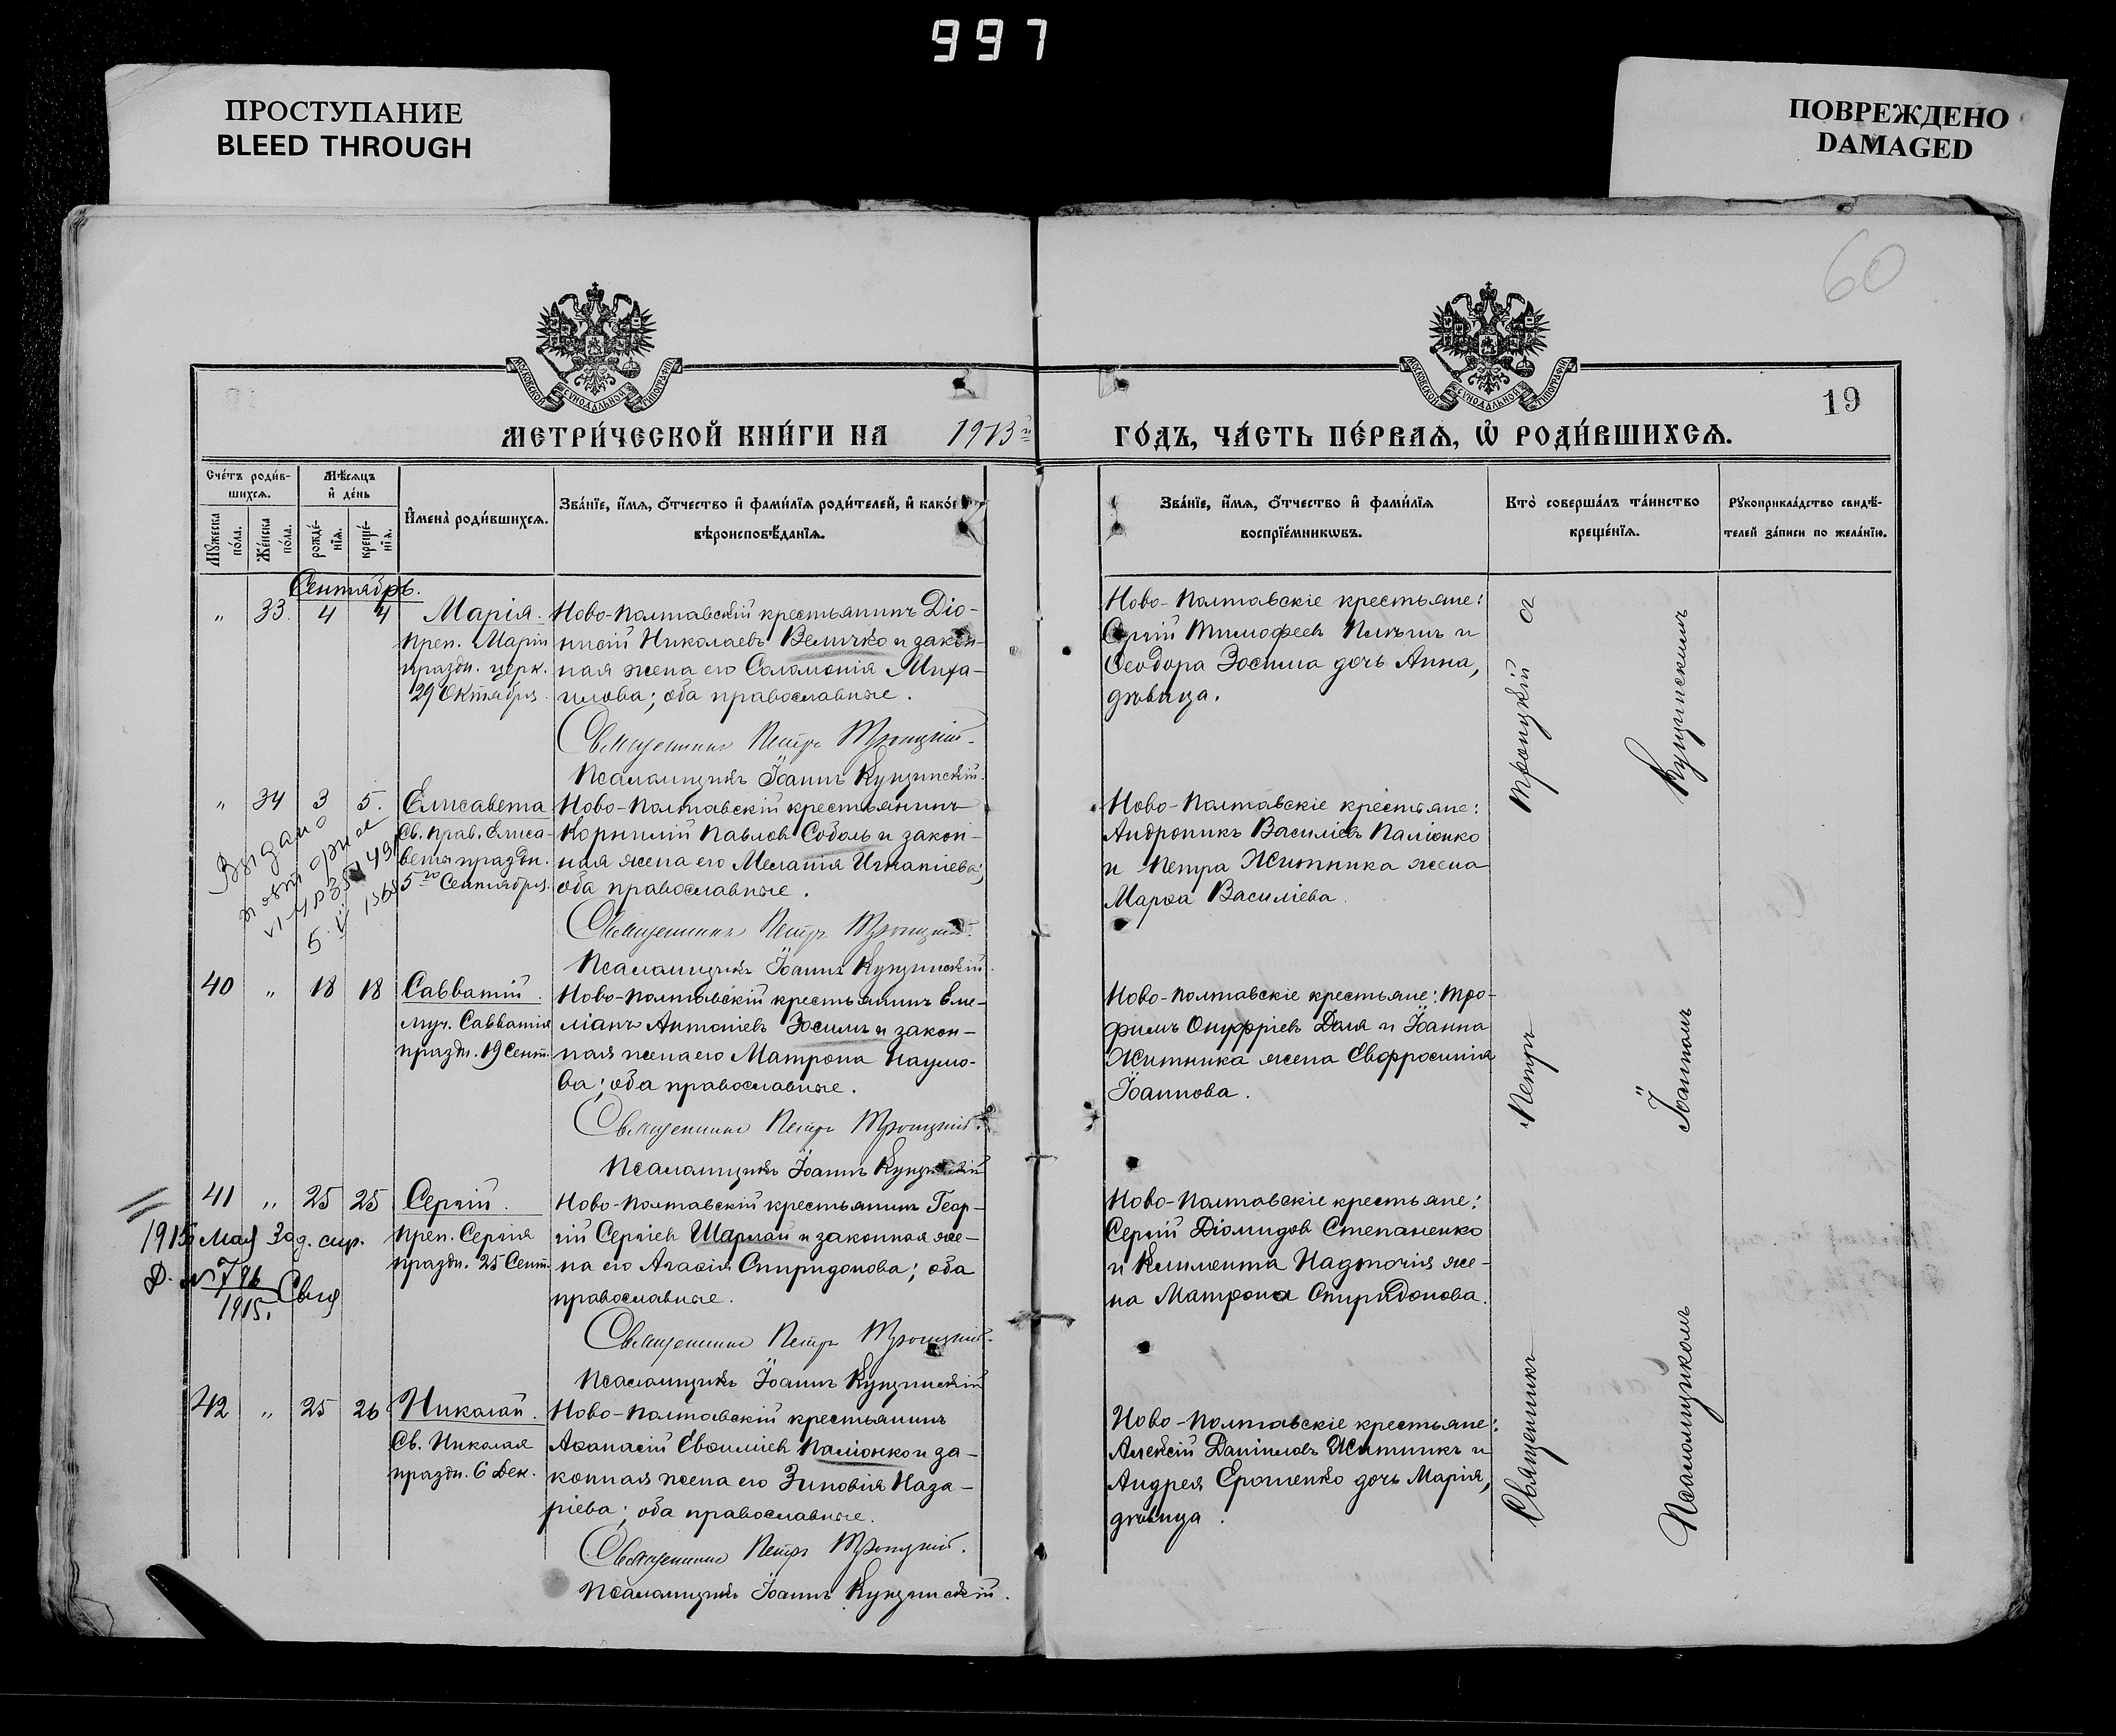 997
ПРОСТУПАНИЕ
BLEED THROUGH
ПОВРЕЖДЕНО
DAMAGED
60
19
МОСКОВСКОЙ СѴНОДАЛЬНОЙ ТИПОГРАФІИ
МОСКОВСКОЙ СѴНОДАЛЬНОЙ ТИПОГРАФІИ
МЕТРИ́ЧЕСКОЙ КНИ́ГИ НА 1913й ГО́ДЪ, ЧА́СТЬ ПЕ́РВАѦ, Ѡ҆ РОДИ́ВШИХСѦ.
Сче́тъ роди́в-
шихсѧ.
Мꙋ́жеска
по́ла.
Же́нска
по́ла.
Мѣ́сѧцъ
и҆ де́нь
рожде́-
нїѧ.
креще́-
нїѧ.
И҆мена̀ роди́вшихсѧ.
Зва́нїе, и҆́мѧ, ѻ҆́тчество и҆ фами́лїѧ роди́телей, и҆ како́гѡ
вѣроисповѣ́данїѧ.
Зва́нїе, и҆́мѧ, ѻ҆́тчество и҆ фами́лїѧ
воспрїе́мникѡвъ.
Кто̀ соверша́лъ та́инство
креще́нїѧ.
Рꙋкоприкла́дство свидѣ́-
телей за́писи по жела́нїю.
Сентябрь.
„ 33. 4 4 Марія.
Преп. Маріи
праздн. церк.
29 Октября.
Ново-Полтавскій крестьянинъ Діо-
нисій Николаевъ Величко и закон-
ная жена его Соломонія Миха-
илова; оба православные.
Священникъ Петръ Троицкій.
Псаломщикъ Іоаннъ Кунчинскій.
Ново-Полтавскіе крестьяне:
Сергій Тимофеевъ и
Ѳеодора Зосима дочь Анна,
дѣвица.
„ 34 3 5. Елисавета
Св. прав. Елиса-
веты праздн.
5го Сентября.
Выдано
повторное
5. V 1965
Ново-Полтавскій крестьянинъ
Корнилій Павловъ Соболь и закон-
ная жена его Меланія Игнатіева;
оба православные.
Священникъ Петръ Троицкій.
Псаломщикъ Іоаннъ Кунчинскій.
Ново-Полтавскіе крестьяне:
Андроникъ Василіевъ Паліонко
и Петра Житника жена
Марѳа Василіева.
40 „ 18 18 Савватий.
муч. Савватія
праздн. 19 Сент.
Ново-Полтавскій крестьянинъ Еме-
ліанъ Антоніевъ Зосимъ и закон-
ная жена его Матрона Наумо-
ва; оба православные.
Священникъ Петръ Троицкій.
Псаломщикъ Іоаннъ Кунчинскій
Ново-Полтавскіе крестьяне: Тро-
фимъ Онуфріевъ Доля и Іоанна
Житника жена Евфросинія
Іоаннова.
41 „ 25 25 Сергій.
преп. Сергія
праздн. 25 Сент.
1915 Мая 30 д.
Д. № 796
1915.
Ново-Полтавскій крестьянинъ Геор-
гій Сергіевъ Шарлай и законная же-
на его Агаѳія Спиридонова; оба
православные.
Священникъ Петръ Троицкій.
Псаломщикъ Іоаннъ Кунчинскій
Ново-Полтавскіе крестьяне:
Сергій Діомидовъ Степаненко
и Климента Надточія же-
на Матрона Спиридонова.
42 „ 25 26 Николай.
Св. Николая
праздн. 6 Дек.
Ново-Полтавскій крестьянинъ
Аѳанасій Евѳиміевъ Паліонко и за-
конная жена его Зиновія Наза-
ріева; оба православные.
Священникъ Петръ Троицкій.
Псаломщикъ Іоаннъ Кунчинскій.
Ново-Полтавскіе крестьяне:
Алексій Даніиловъ Житникъ и
Андрея Ерошенко дочь Марія,
дѣвица.
Священникъ Петръ Троицкій съ
Псаломщикомъ Іоанномъ Кунчинскимъ